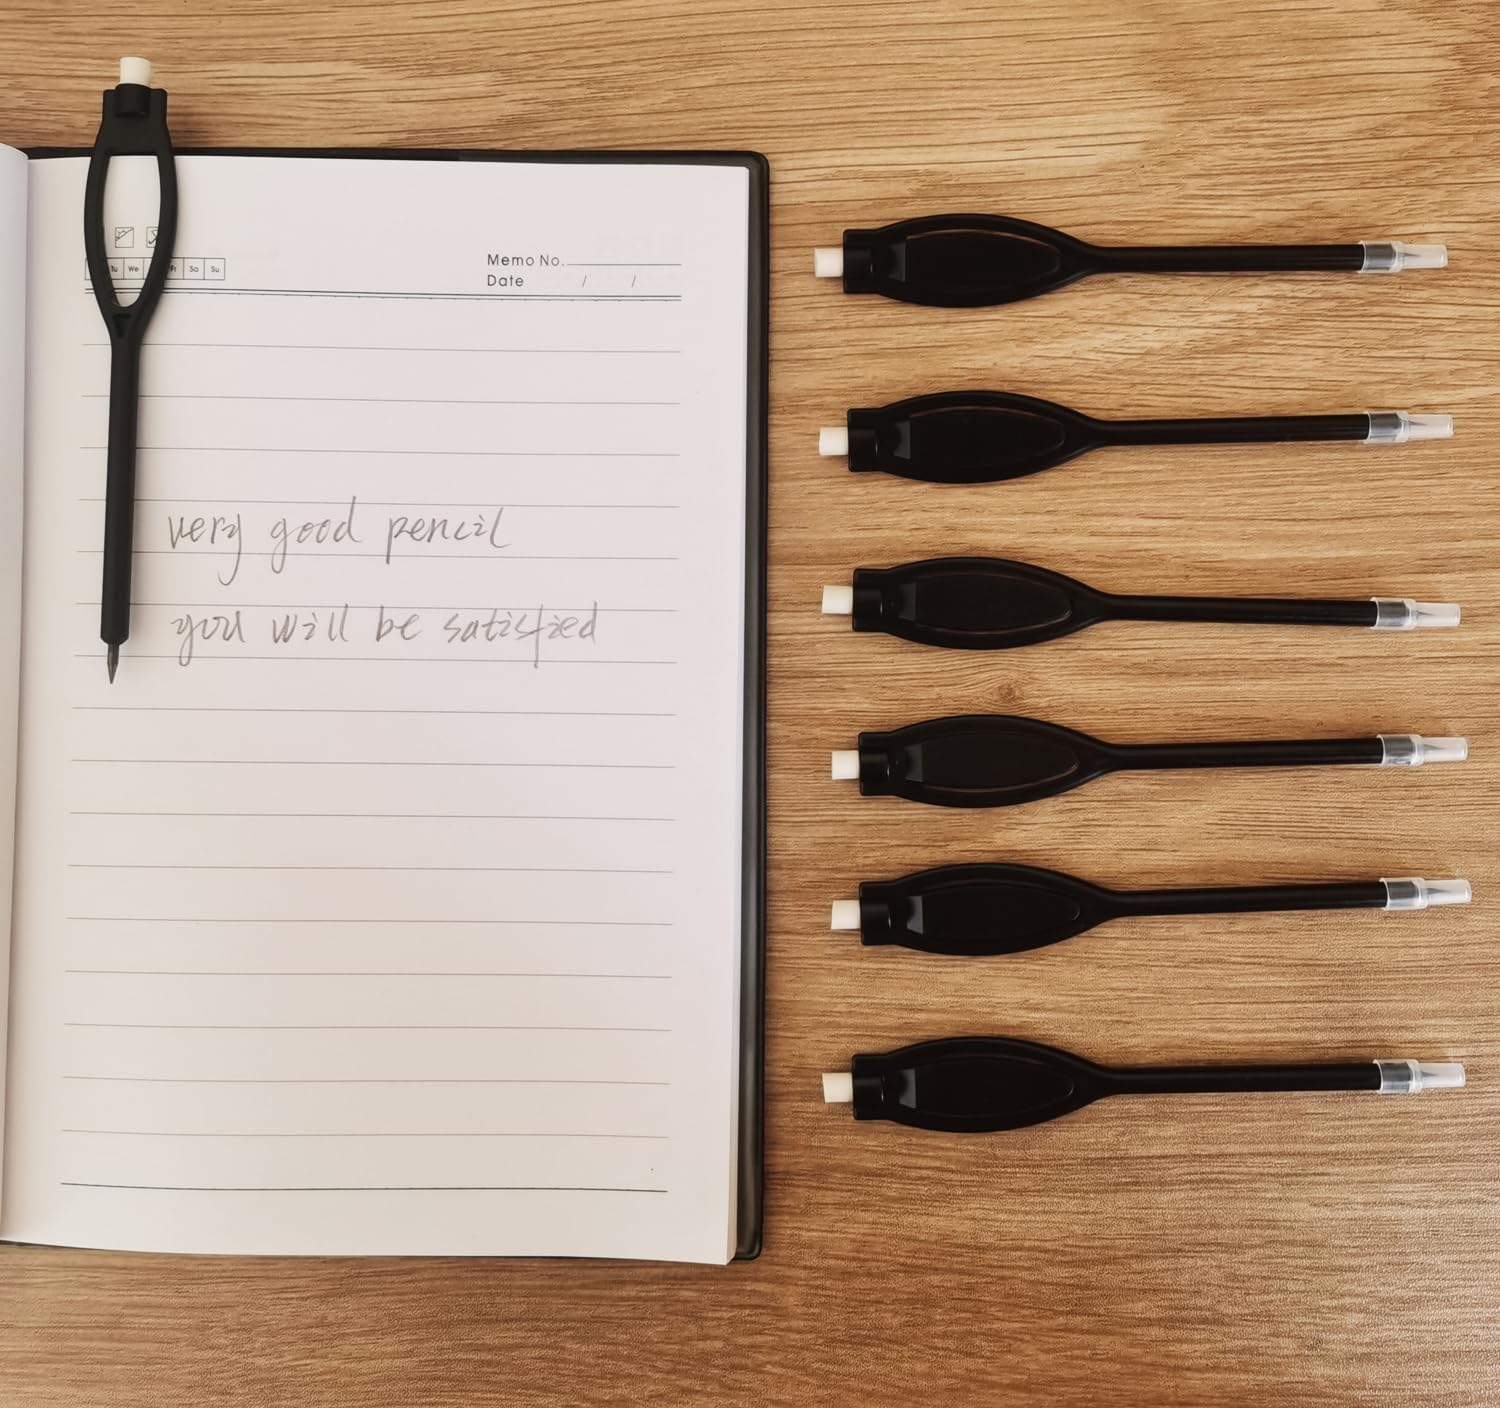 Tu We Fr Sa Su
Memo No.
Date / /
very good pencil
you will be satisfied